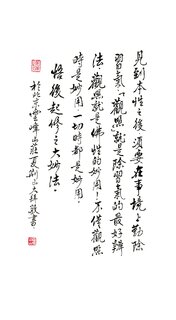 見到本性之後須要在事境上勤除
習氣「觀照」就是除習氣的最好辦
法觀照就是佛性的妙用！不僅觀照
時是妙用一切時都是妙用，
悟後起修之大妙法。
於北京雲峰山莊夏荆山大拜敬書